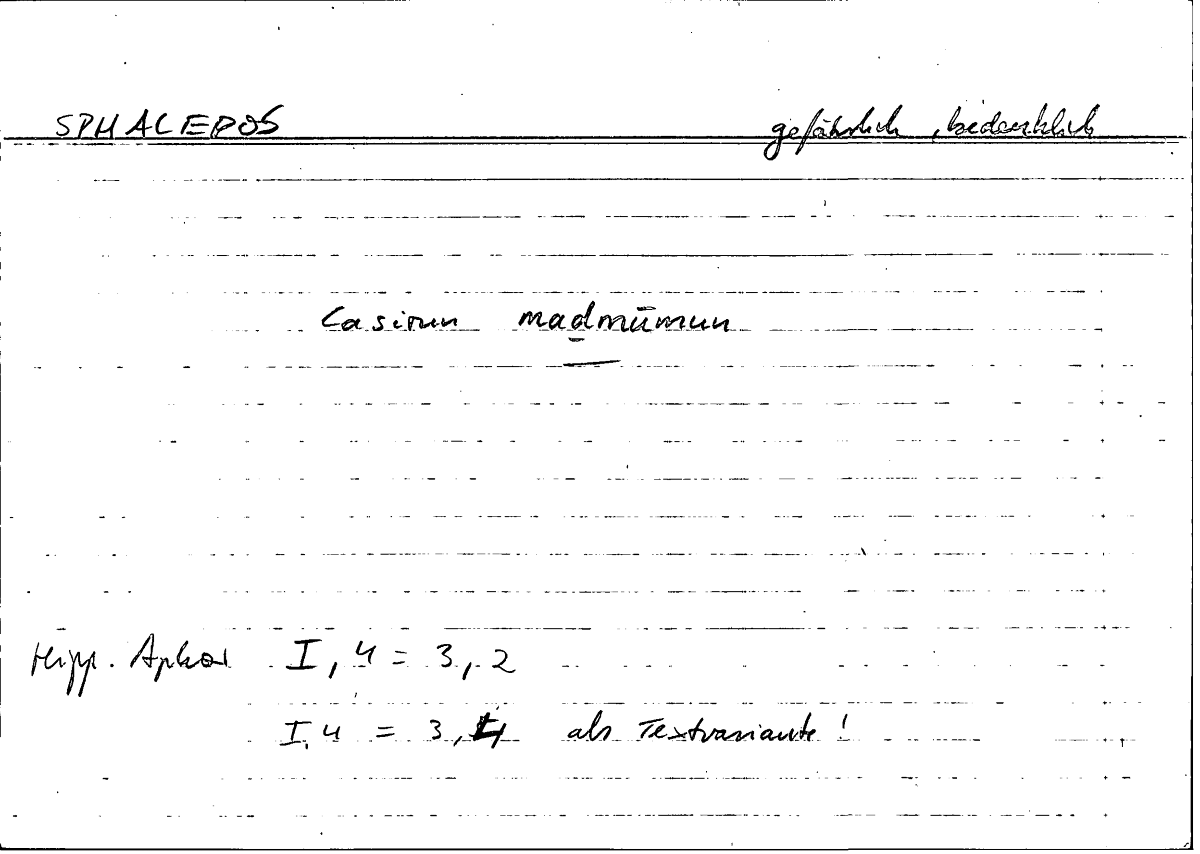 SPHALEROS gefährlich, bedenklich
ʿasirun maḏmūmun
Hipp. Aphor I, 4 = 3, 2
I, 4 = 3, 4 als Textvariante!